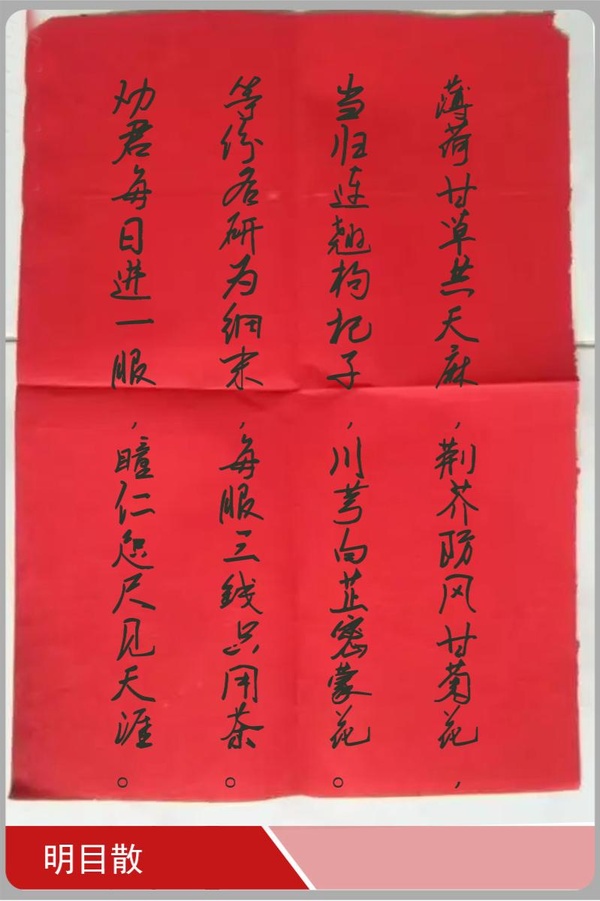 薄荷甘草共天麻，荆芥防风甘菊花，
当归连翘枸杞子，川芎白芷密蒙花。
等份各研为细末，每服三钱只用茶。
劝君每日进一服，瞳仁咫尺见天涯。
明目散